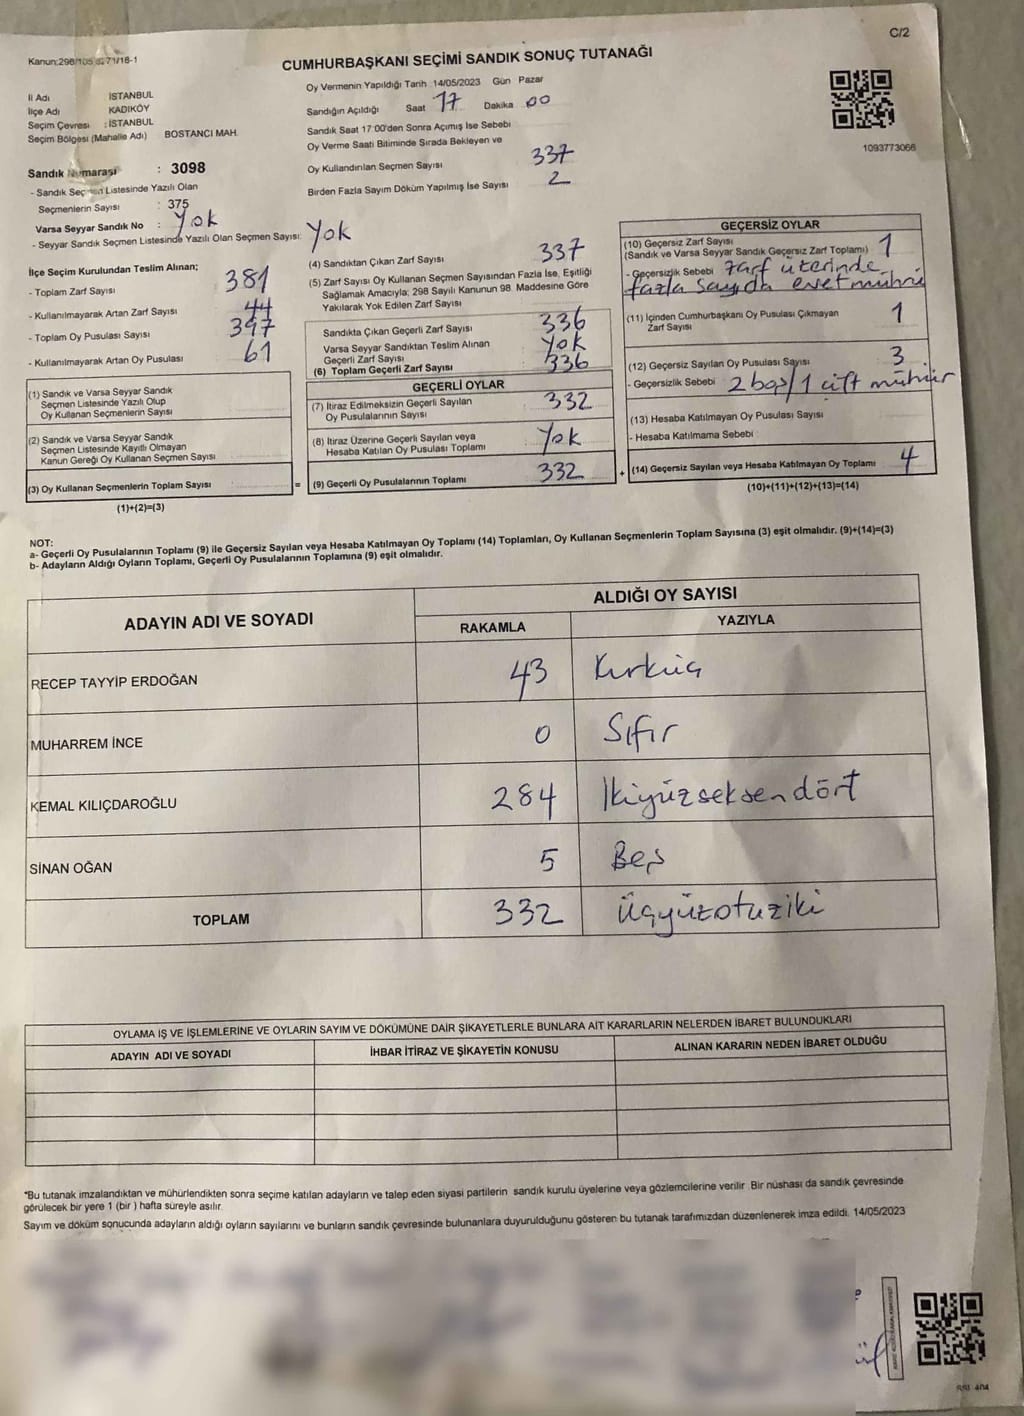 C/2
Kanun:298/105
CUMHURBAŞKANI SEÇİMİ SANDIK SONUÇ TUTANAĞI
İl Adı İSTANBUL
İlçe Adı KADIKÖY
Seçim Çevresi : İSTANBUL
Seçim Bölgesi (Mahalle Adı) BOSTANCI MAH.
Oy Vermenin Yapıldığı Tarih 14/05/2023 Gün Pazar
Sandığın Açıldığı Saat 17 Dakika 00
Sandık Saat 17:00'den Sonra Açımış İse Sebebi
Oy Verme Saati Bitiminde Sırada Bekleyen ve
Oy Kullandırılan Seçmen Sayısı 337
Birden Fazla Sayım Döküm Yapılmış İse Sayısı 2
1093773066
Sandık Numarası : 3098
- Sandık Seçmen Listesinde Yazılı Olan
Seçmenlerin Sayısı : 375
Varsa Seyyar Sandık No : Yok
- Seyyar Sandık Seçmen Listesinde Yazılı Olan Seçmen Sayısı: Yok
İlçe Seçim Kurulundan Teslim Alınan;
- Toplam Zarf Sayısı 381
- Kullanılmayarak Artan Zarf Sayısı 44
- Toplam Oy Pusulası Sayısı 397
- Kullanılmayarak Artan Oy Pusulası 61
(1) Sandık ve Varsa Seyyar Sandık
Seçmen Listesinde Yazılı Olup
Oy Kullanan Seçmenlerin Sayısı
(2) Sandık ve Varsa Seyyar Sandık
Seçmen Listesinde Kayıtlı Olmayan
Kanun Gereği Oy Kullanan Seçmen Sayısı
(3) Oy Kullanan Seçmenlerin Toplam Sayısı =
(1)+(2)=(3)
(4) Sandıktan Çıkan Zarf Sayısı 337
(5) Zarf Sayısı Oy Kullanan Seçmen Sayısından Fazla İse, Eşitliği
Sağlamak Amacıyla; 298 Sayılı Kanunun 98. Maddesine Göre
Yakılarak Yok Edilen Zarf Sayısı
Sandıkta Çıkan Geçerli Zarf Sayısı 336
Varsa Seyyar Sandıktan Teslim Alınan
Geçerli Zarf Sayısı Yok
(6) Toplam Geçerli Zarf Sayısı 336
GEÇERLİ OYLAR
(7) İtiraz Edilmeksizin Geçerli Sayılan
Oy Pusulasının Sayısı 332
(8) İtiraz Üzerine Geçerli Sayılan veya
Hesaba Katılan Oy Pusulası Toplamı Yok
(9) Geçerli Oy Pusulalarının Toplamı 332 +
GEÇERSİZ OYLAR
(10) Geçersiz Zarf Sayısı 1
(Sandık ve Varsa Seyyar Sandık Geçersiz Zarf Toplamı)
- Geçersizlik Sebebi zarf üzerinde
fazla sayıda evet mührü
(11) İçinden Cumhurbaşkanı Oy Pusulası Çıkmayan
Zarf Sayısı 1
(12) Geçersiz Sayılan Oy Pusulası Sayısı 3
- Geçersizlik Sebebi 2 boş/1 çift mühür
(13) Hesaba Katılmayan Oy Pusulası Sayısı
- Hesaba Katılmama Sebebi
(14) Geçersiz Sayılan veya Hesaba Katılmayan Oy Toplamı 4
(10)+(11)+(12)+(13)=(14)
NOT:
a- Geçerli Oy Pusulalarının Toplamı (9) ile Geçersiz Sayılan veya Hesaba Katılmayan Oy Toplamı (14) Toplamları, Oy Kullanan Seçmenlerin Toplam Sayısına (3) eşit olmalıdır. (9)+(14)=(3)
b- Adayların Aldığı Oyların Toplamı, Geçerli Oy Pusulalarının Toplamına (9) eşit olmalıdır.
ADAYIN ADI VE SOYADI ALDIĞI OY SAYISI
RAKAMLA YAZIYLA
RECEP TAYYİP ERDOĞAN 43 Kırküç
MUHARREM İNCE 0 Sıfır
KEMAL KILIÇDAROĞLU 284 İkiyüzseksendört
SİNAN OĞAN 5 Beş
TOPLAM 332 Üçyüzotuziki
OYLAMA İŞ VE İŞLEMLERİNE VE OYLARIN SAYIM VE DÖKÜMÜNE DAİR ŞİKAYETLERLE BUNLARA AİT KARARLARIN NELERDEN İBARET BULUNDUKLARI
ADAYIN ADI VE SOYADI İHBAR İTİRAZ VE ŞİKAYETİN KONUSU ALINAN KARARIN NEDEN İBARET OLDUĞU
*Bu tutanak imzalandıktan ve mühürlendikten sonra seçime katılan adayların ve talep eden siyasi partilerin sandık kurulu üyelerine veya gözlemcilerine verilir. Bir nüshası da sandık çevresinde
görülecek bir yere 1 (bir ) hafta süreyle asılır.
Sayım ve döküm sonucunda adayların aldığı oyların sayılarını ve bunların sandık çevresinde bulunanlara duyurulduğunu gösteren bu tutanak tarafımızdan düzenlenerek imza edildi. 14/05/2023